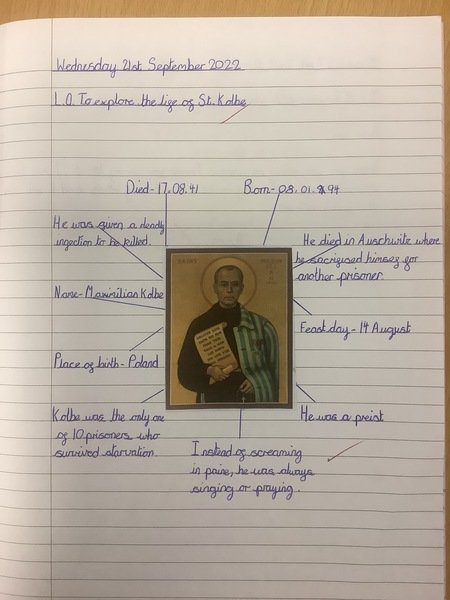 Wednesday 21st September 2022
L.O. To explore the life of St. Kolbe
Died - 17.08.41
Born - 08.01.94
He was given a deadly
injection to be killed.
He died in Auschwitz where
he sacrificed himself for
another prisoner.
SAINT
Name - Maximilian Kolbe
Feast day - 14 August
Place of birth - Poland
Kolbe was the only one
of 10 prisoners who
survived starvation.
He was a preist
Instead of screaming
in paine, he was always
singing or praying.